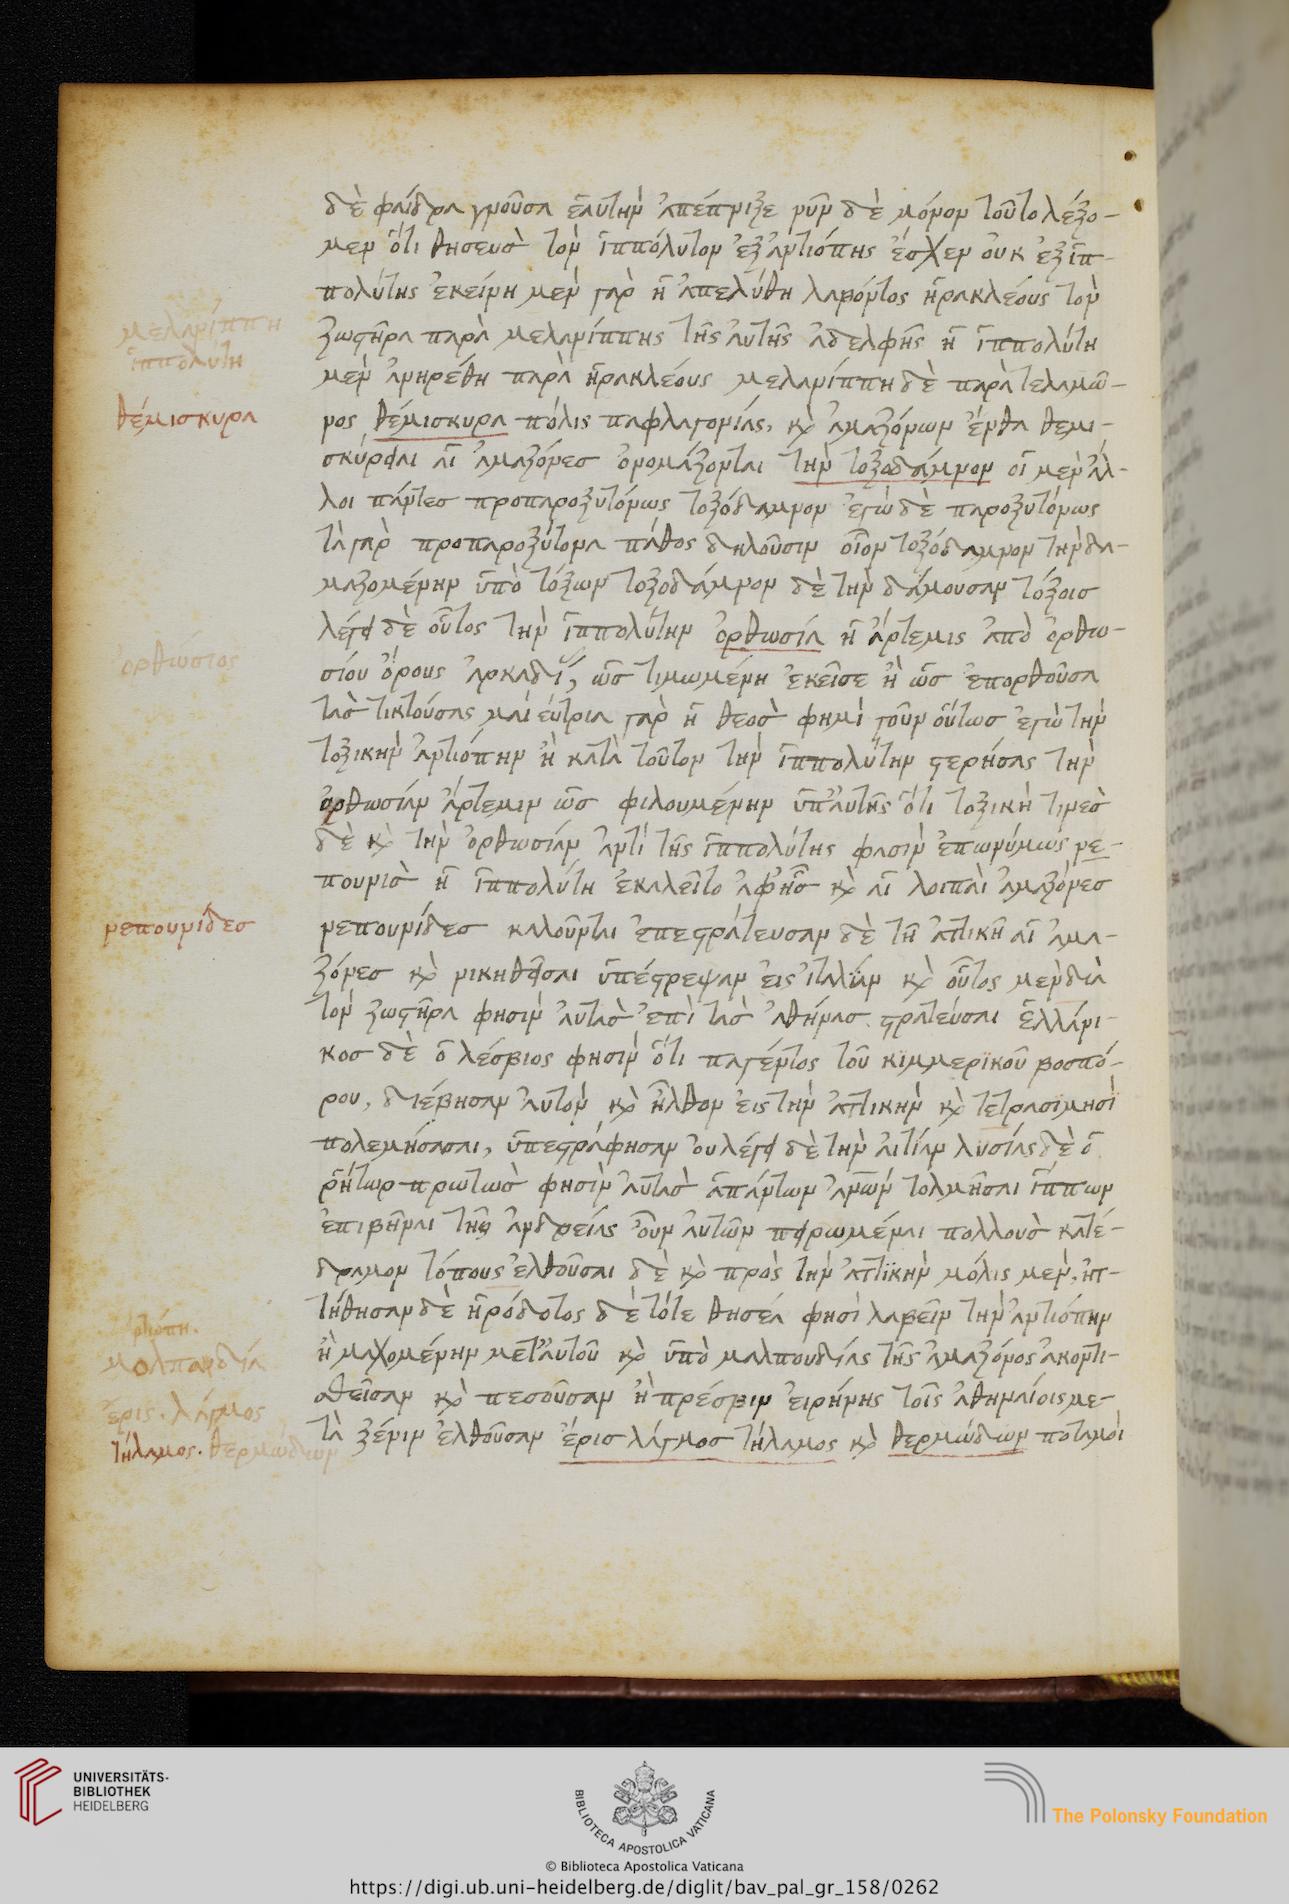 δὲ φαίδρα γνοῦσα ἑαυτὴν ἀπέπνιξε νῦν δὲ μόνον τοῦτο λέξο-
μεν ὅτι θησευσ τὸν ἱππόλυτον ἐξ ἀντιόπης ἔσχεν οὐκ ἐξ ἱπ-
πολύτης ἐκείνη μὲν γὰρ ἢ ἀπελύθη λαβόντος ἡρακλέους τὸν
ζωστῆρα παρὰ μελανίππης τῆς αὐτῆς ἀδελφῆς ἢ ἱππολύτη
μὲν ἀνηρέθη παρὰ ἡρακλέους μελανίππη δὲ παρὰ τελαμῶ-
νος θέμισκυρα πόλις παφλαγονίας, κὰ ἀμαζόνων ἔνθα θεμι-
σκύρειαι αἱ ἀμαζόνεσ ὀνομάζονται τὴν τοξοδάμνον οἱ μὲν ἄλ-
λοι πάντεσ προπαροξυτόνως τοξόδαμνον ἐγὼ δὲ παροξυτόνως
τὰ γὰρ προπαροξύτονα πάθος δηλοῦσιν οἷον τοξόδαμνον τὴν δα-
μαζομένην ὑπὸ τόξων τοξοδάμνον δὲ τὴν δάμουσαν τόξοισ
λέγει δὲ οὗτος τὴν ἱππολύτην ὀρθωσία ἡ ἄρτεμις ἀπὸ ὀρθω-
σίου ὄρους ἀρκαδί, ὡσ τιμωμένη ἐκεῖσε ἢ ὡσ ἐπορθοῦσα
τὰσ τικτούσας μαιεύτρια γὰρ ἡ θεοσ φημὶ γοῦν οὕτωσ ἐγὼ τὴν
τοξικὴν ἀντιόπην ἢ κατὰ τοῦτον τὴν ἱππολύτην στερήσας τὴν
ὀρθωσίαν ἄρτεμιν ὡσ φιλουμένην ὑπ' αὐτῆς ὅτι τοξικὴ τινεσ
δὲ κὰ τὴν ὀρθωσίαν ἀντὶ τῆς ἱππολύτης φασὶν ἐπωνύμως νε-
πουνισ ἡ ἱππολύτη ἐκαλεῖτο ἀφ' ἧσ κὰ αἱ λοιπαὶ ἀμαζόνεσ
νεπουνίδεσ καλοῦνται ἐπεστράτευσαν δὲ τῇ ἀττικῇ αἱ ἀμα-
ζόνεσ κὰ νικηθεῖσαι ὑπέστρεψαν εἰς ἰταλίαν κὰ οὗτος μὲν διὰ
τὸν ζωστῆρα φησὶν αὐτὰσ ἐπὶ τὰσ ἀθήνασ στρατεῦσαι ἑλλάνι-
κοσ δὲ ὁ λέσβιος φησὶν ὅτι παγέντος τοῦ κιμμερικοῦ βοσπό-
ρου, διέβησαν αὐτὸν κὰ ἦλθον εἰς τὴν ἀττικὴν κὰ τετρασὶ μησὶ
πολεμήσασαι, ὑπεστράφησαν οὐ λέγει δὲ τὴν αἰτίαν λυσίας δὲ ὁ
ῥήτωρ πρώτωσ φησὶν αὐτὰσ ἁπάντων ἀνῶν τολμῆσαι ἵππων
ἐπιβῆναι τῆς ἀνδρείας οὖν αὐτῶν πειρωμέναι πολλοὺσ κατέ-
δραμον τόπους ἐλθοῦσαι δὲ κὰ πρὸς τὴν ἀττικὴν μόλις μὲν, ἡτ-
τήθησαν δὲ ἡρόδοτος δὲ τότε θησέα φησὶ λαβεῖν τὴν ἀντιόπην
ἢ μαχομένην μετ' αὐτοῦ κὰ ὑπὸ μαλπουδίας τῆς ἀμαζόνος ἀκοντι-
σθεῖσαν κὰ πεσοῦσαν ἢ πρέσβιν εἰρήνης τοῖς ἀθηναίοις με-
τὰ ξένιν ἐλθοῦσαν ἔρισ λάγμοσ τήλαμος κὰ θερμώδων ποταμοὶ
μελανίππη
ἱππολύτη
θέμισκυρα
ὀρθώσιος
νεπουνίδεσ
μολπαδία
ἔρις. λάγμος
τήλαμος. θερμώδων
UNIVERSITÄTS-
BIBLIOTHEK
HEIDELBERG
BIBLIOTECA APOSTOLICA VATICANA
The Polonsky Foundation
© Biblioteca Apostolica Vaticana
https://digi.ub.uni-heidelberg.de/diglit/bav_pal_gr_158/0262